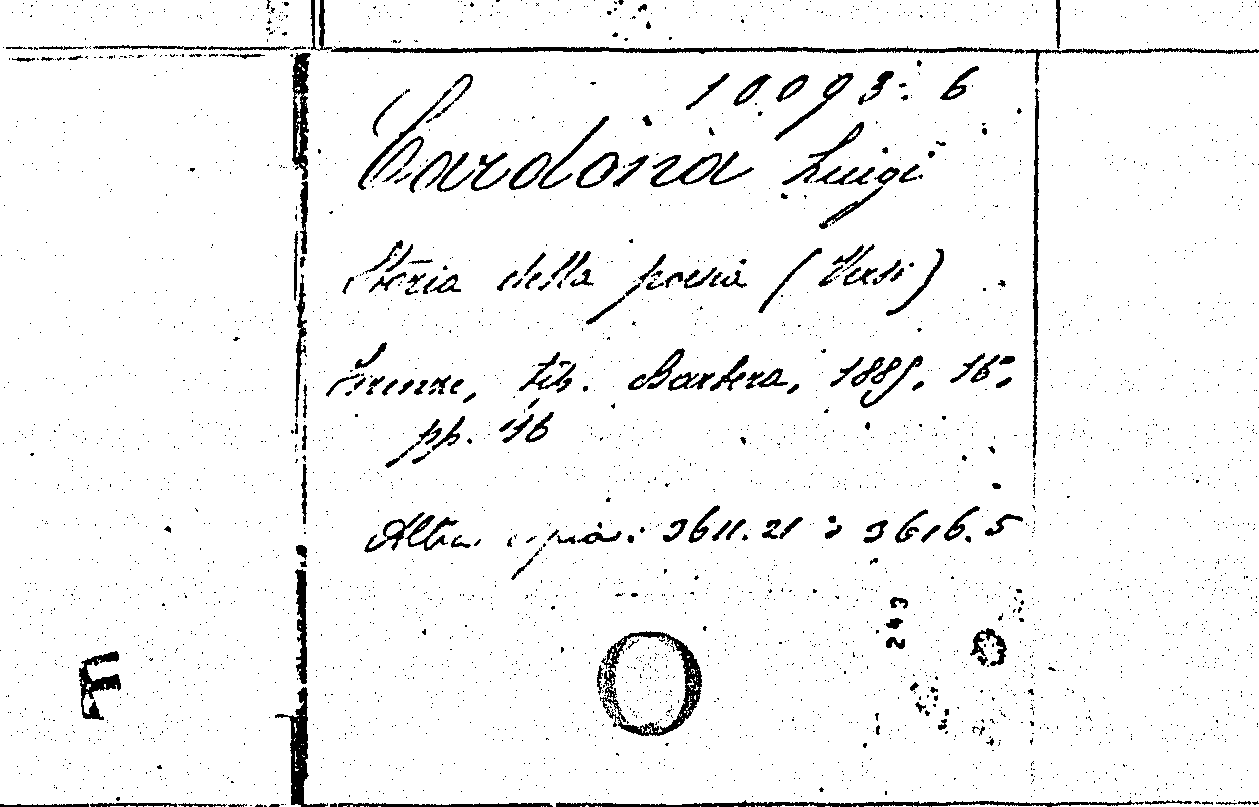 10093. 6
Cardona Luigi
Storia della poesia (Versi)
Firenze, tip. Barbera, 1889, 16°,
pp. 46
Altra copia: 3611.21 3616.5
243
F